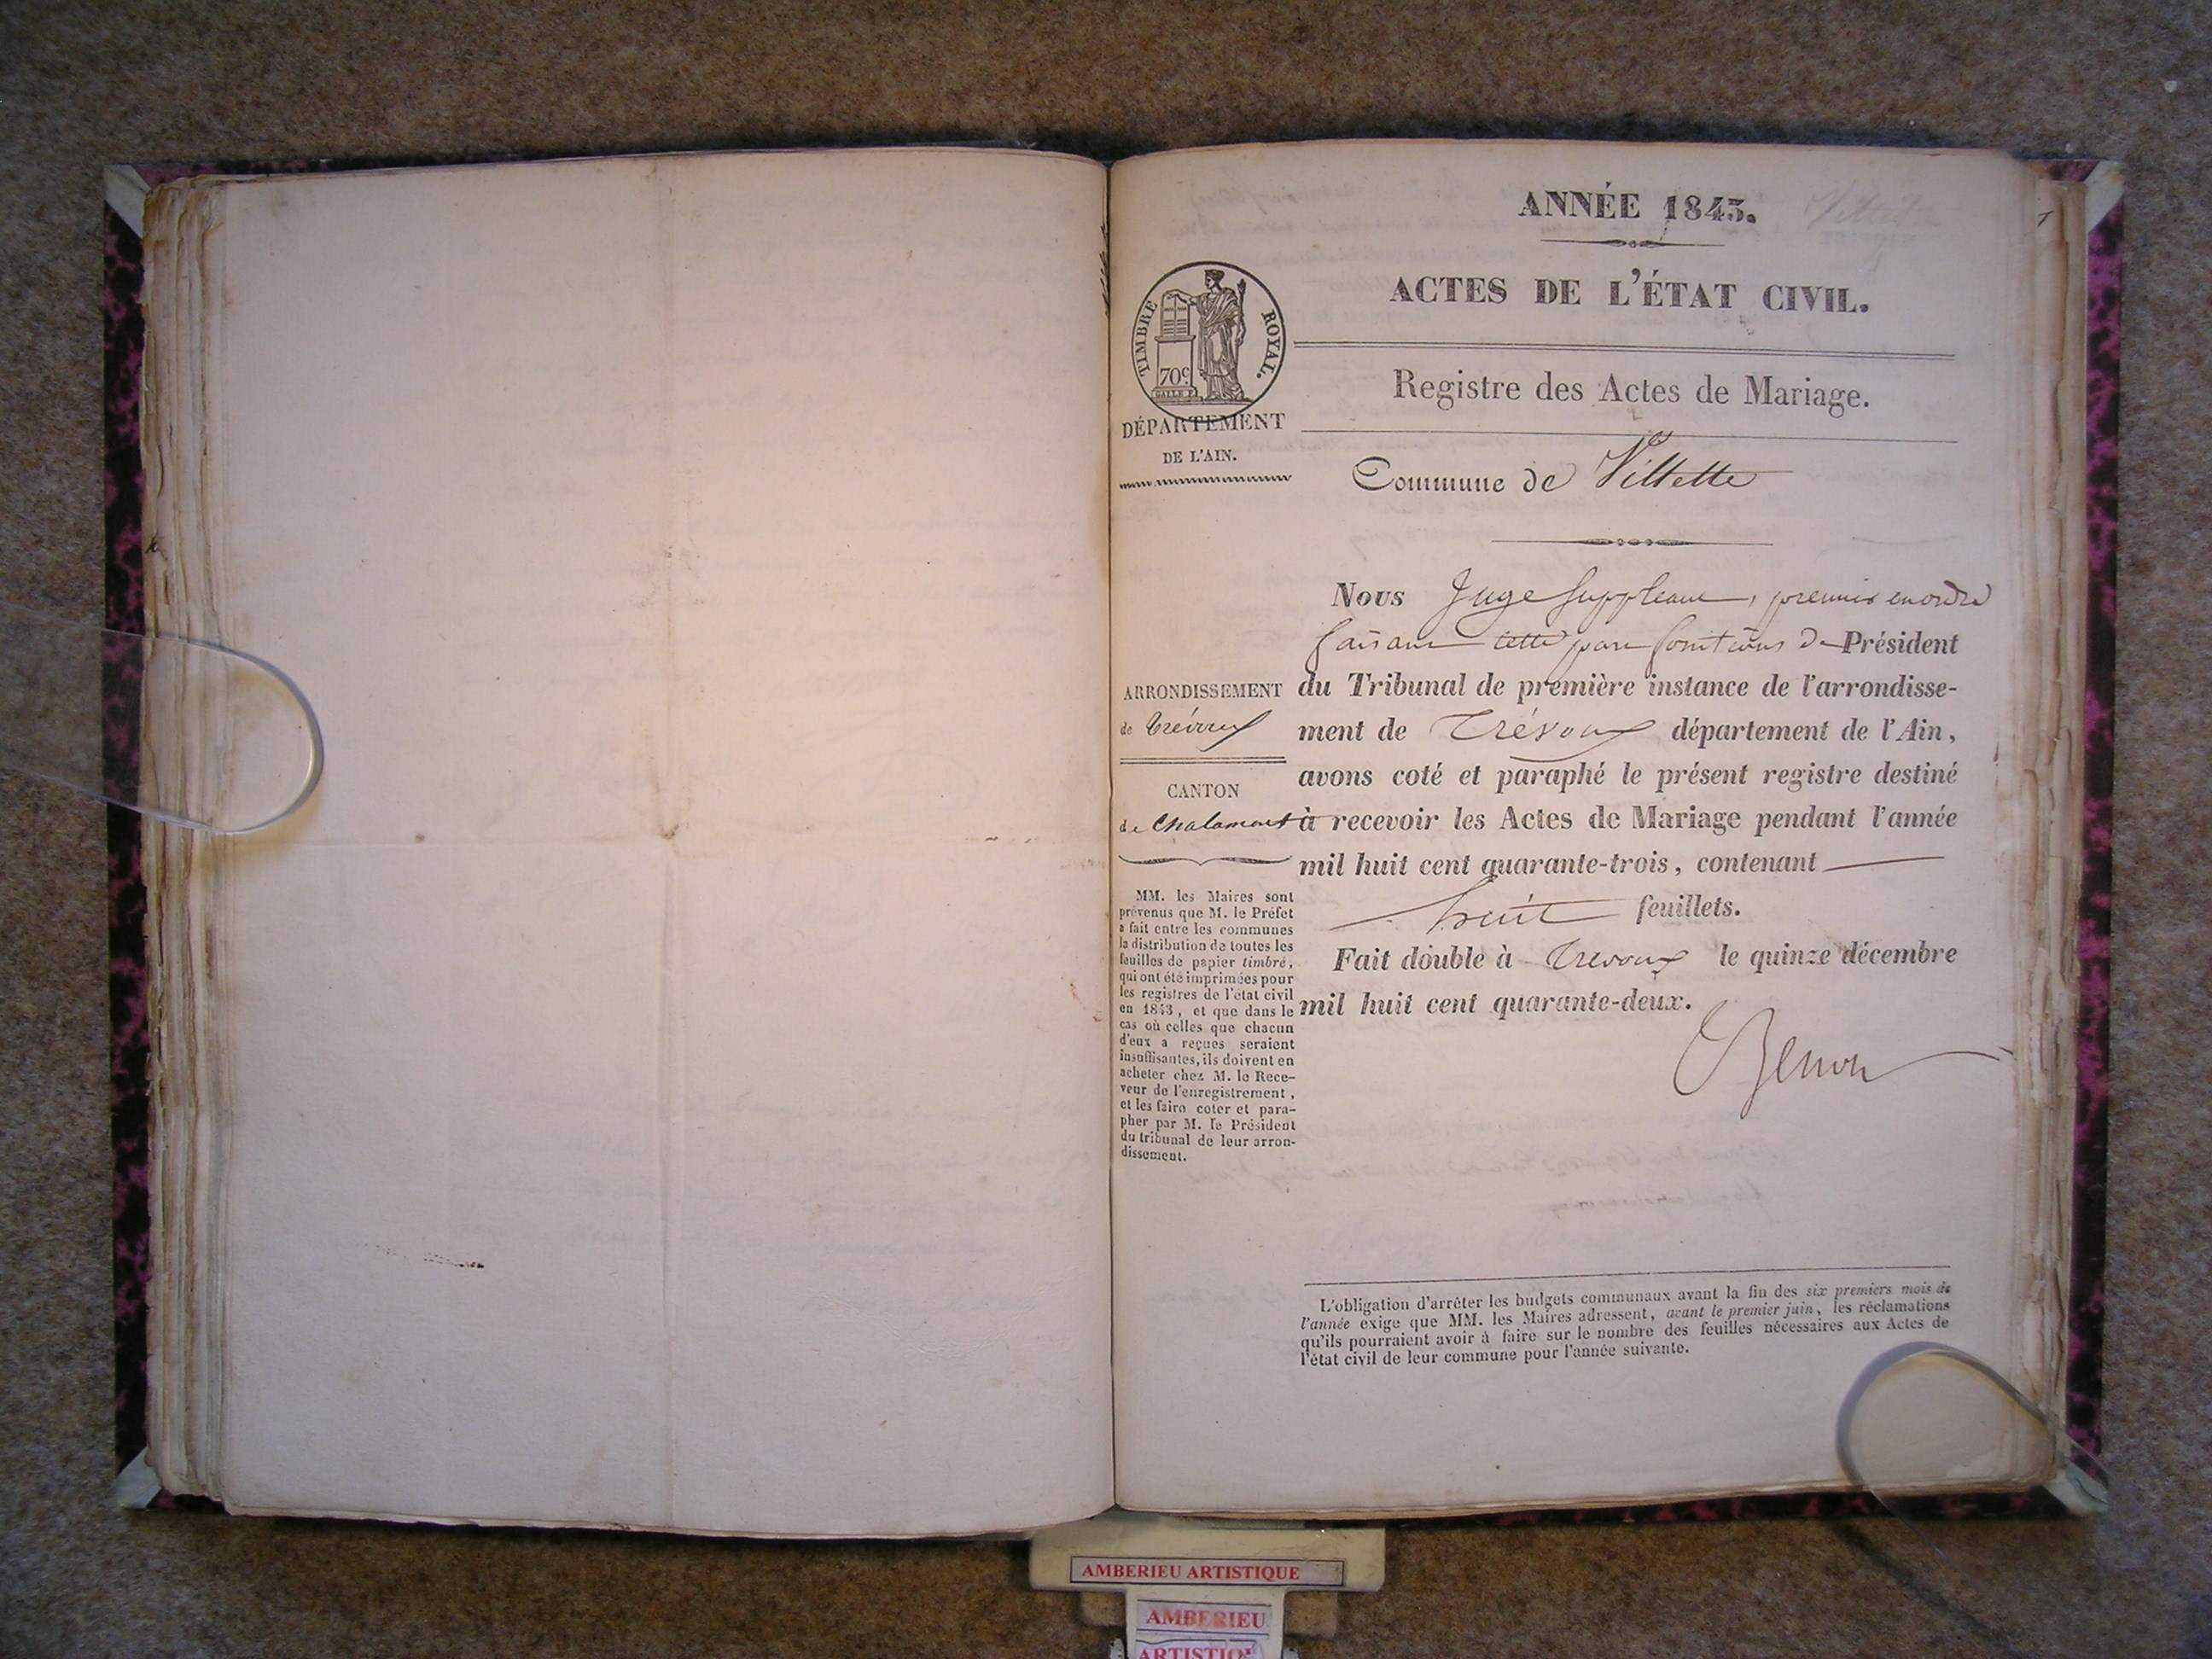 ANNÉE 1843.
ACTES DE L'ÉTAT CIVIL.
TIMBRE ROYAL.
70c
GALLE F.
Registre des Actes de Mariage.
DÉPARTEMENT
DE L'AIN.
Commune de Villette
Nous Juge Suppleant, premier en ordre
faisant cette part fonctions de Président
ARRONDISSEMENT
de Trévoux
du Tribunal de première instance de l'arrondisse-
ment de Trévoux département de l'Ain,
avons coté et paraphé le présent registre destiné
CANTON
de Chalamont
à recevoir les Actes de Mariage pendant l'année
mil huit cent quarante-trois, contenant
huit feuillets.
Fait double à Trevoux le quinze décembre
mil huit cent quarante-deux.
MM. les Maires sont
prévenus que M. le Préfet
a fait entre les communes
la distribution de toutes les
feuilles de papier timbré,
qui ont été imprimées pour
les registres de l'état civil
en 1843, et que dans le
cas où celles que chacun
d'eux a reçues seraient
insuffisantes, ils doivent en
acheter chez M. le Rece-
veur de l'enregistrement,
et les faire coter et para-
pher par M. le Président
du tribunal de leur arron-
dissement.
L'obligation d'arrêter les budgets communaux avant la fin des six premiers mois de
l'année exige que MM. les Maires adressent, avant le premier juin, les réclamations
qu'ils pourraient avoir à faire sur le nombre des feuilles nécessaires aux Actes de
l'état civil de leur commune pour l'année suivante.
AMBERIEU ARTISTIQUE
AMBERIEU
ARTISTIQU